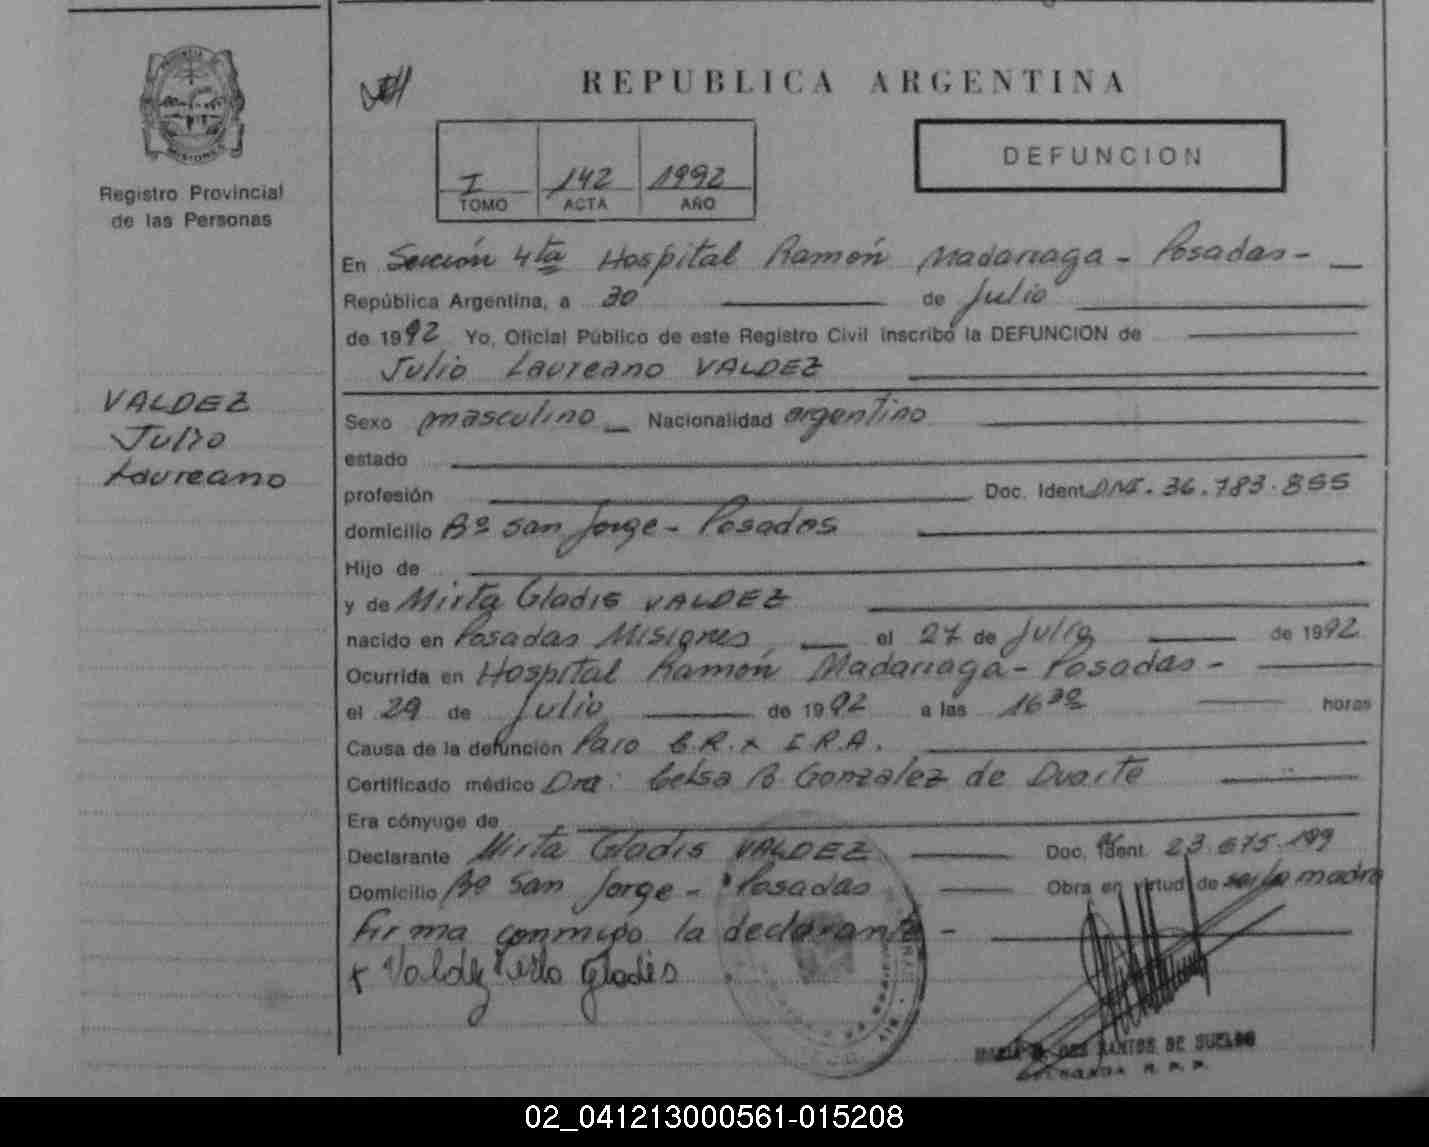 REPUBLICA ARGENTINA
DEFUNCION
I 142 1992
TOMO ACTA AÑO
MISIONES
Registro Provincial
de las Personas
VALDEZ
Julio
Laureano
En Sección 4ta Hospital Ramón Madariaga - Posadas -
República Argentina, a 30 de Julio
de 1992 Yo, Oficial Público de este Registro Civil inscribo la DEFUNCION de
Julio Laureano VALDEZ
Sexo masculino Nacionalidad argentino
estado
profesión Doc. Ident. DNI. 36.783.855
domicilio Bº San Jorge - Posadas
Hijo de
y de Mirta Gladis VALDEZ
nacido en Posadas Misiones el 27 de Julio de 1992
Ocurrida en Hospital Ramón Madariaga - Posadas -
el 29 de Julio de 1992 a las 16 30 horas
Causa de la defunción Paro C.R. x I.R.A.
Certificado médico Dra: Celsa B Gonzalez de Duarte
Era cónyuge de
Declarante Mirta Gladis VALDEZ Doc. Ident. 23.675.199
Domicilio Bº San Jorge - Posadas Obra en virtud de ser la madre
Firma conmigo la declarante -
x Valdez Mirta Gladis
DOS SANTOS DE SUELDO
DELEGADA R.P.P.
02_041213000561-015208